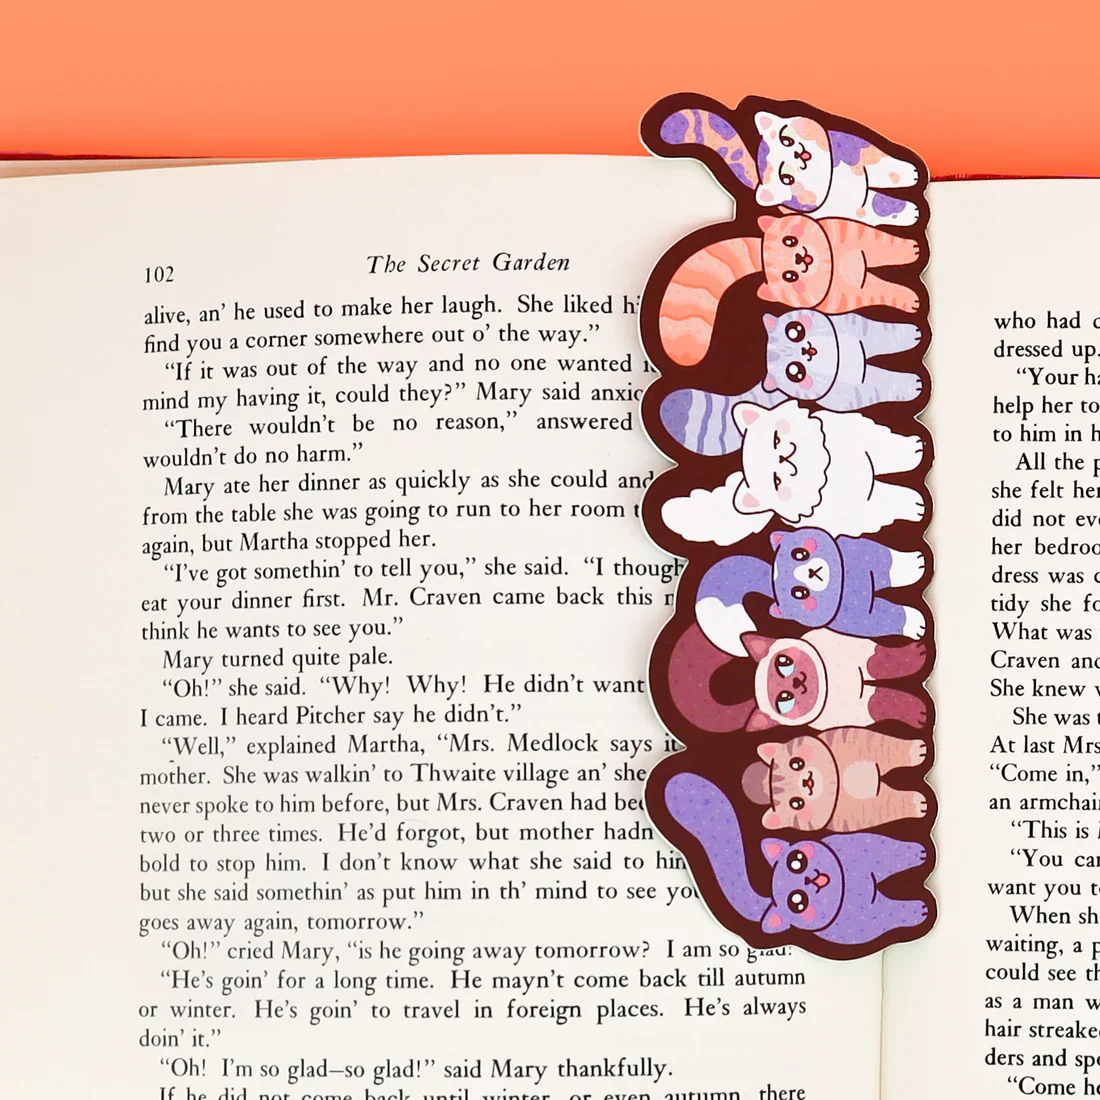 102
The Secret Garden
alive, an’ he used to make her laugh. She liked
find you a corner somewhere out o’ the way.”
“If it was out of the way and no one wanted
mind my having it, could they?” Mary said
“There wouldn’t be no reason,” answered
wouldn’t do no harm.”
Mary ate her dinner as quickly as she could and
from the table she was going to run to her room
again, but Martha stopped her.
“I’ve got somethin’ to tell you,” she said. “I
eat your dinner first. Mr. Craven came back this
think he wants to see you.”
Mary turned quite pale.
“Oh!” she said. “Why! Why! He didn’t want
I came. I heard Pitcher say he didn’t.”
“Well,” explained Martha, “Mrs. Medlock says
mother. She was walkin’ to Thwaite village an’ she
never spoke to him before, but Mrs. Craven had
two or three times. He’d forgot, but mother
bold to stop him. I don’t know what she said to
but she said somethin’ as put him in th’ mind to see
goes away again, tomorrow.”
“Oh!” cried Mary, “is he going away tomorrow? I am so glad!”
“He’s goin’ for a long time. He mayn’t come back till autumn
or winter. He’s goin’ to travel in foreign places. He’s always
doin’ it.”
“Oh! I’m so glad—so glad!” said Mary thankfully.
If he did not come back until winter, or even autumn, there
who had
dressed up.
“Your
help her to
to him in
All the
she felt
did not
her
dress was
tidy she
What was
Craven and
She knew
She was
At last
“Come in,”
an
“This is
“You
want you
When
waiting, a
could see
as a man
hair
ders and
“Come